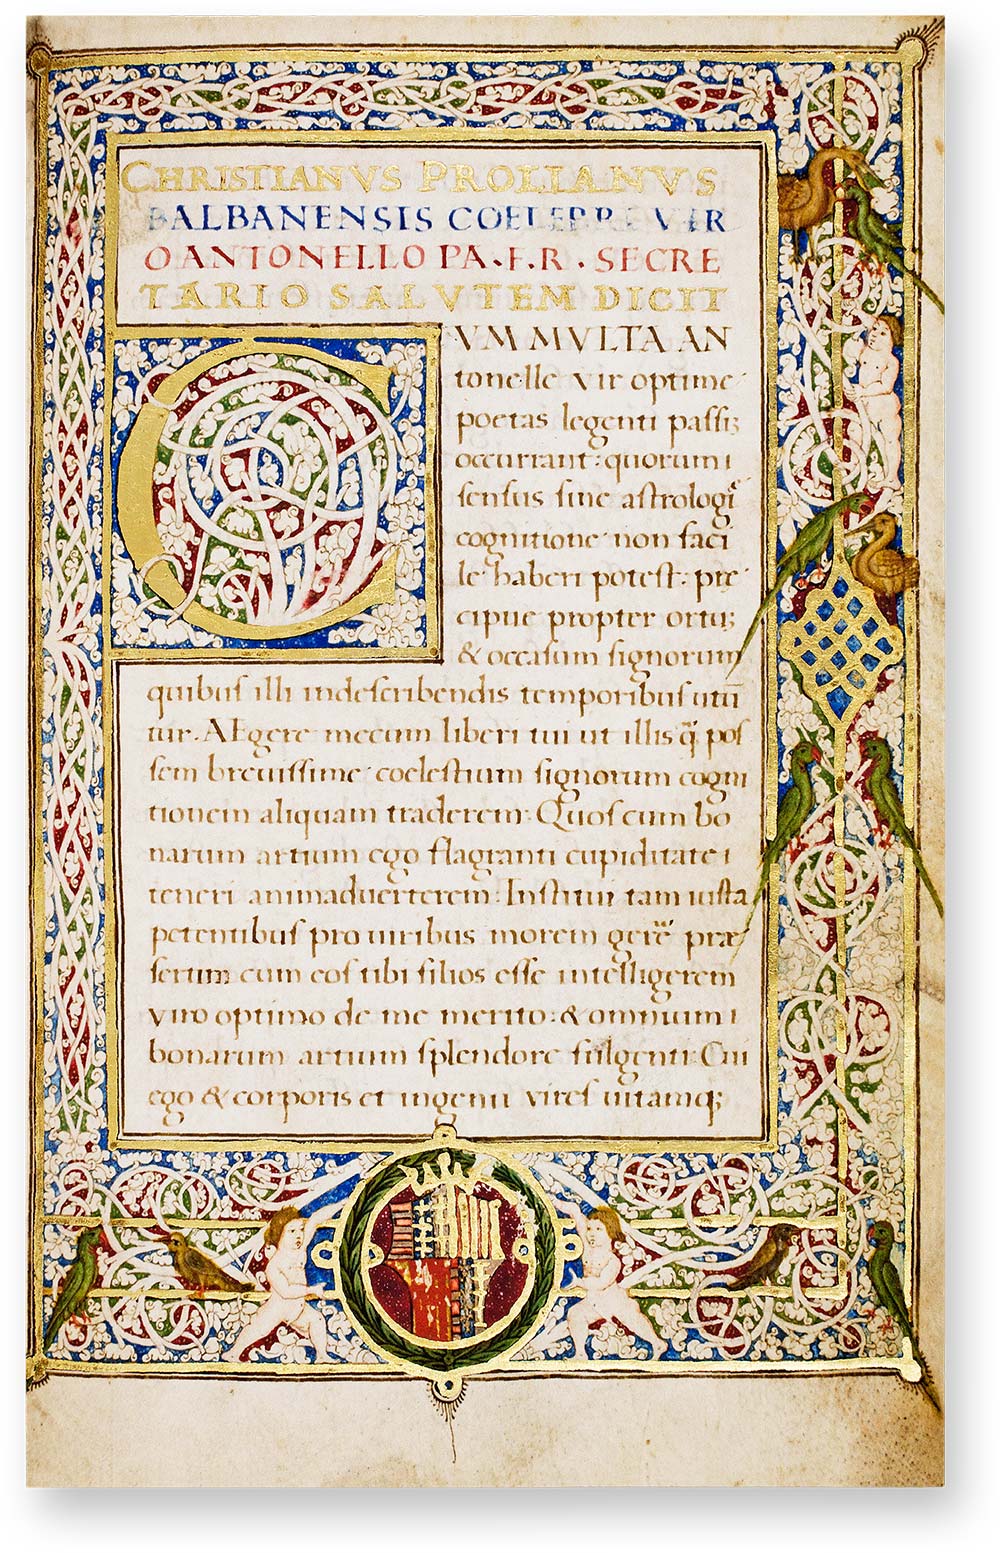 CHRISTIANVS PROLIANVS
BALBANENSIS COELEBRE VIR
O ANTONELLO PA·F·R·SECRE
TARIO SALVTEM DICIT
CVM MVLTA AN
tonelle vir optime
poetas legenti passiꝫ
occurrant: quorum
sensus sine astrologi
cognitione non faci
le haberi potest: prę
cipue propter ortuꝫ
& occasum signorum
quibus illi indescribendis temporibus utū
tur. AEgere mecum liberi tui ut illis q̃ pos
sem breuissime coelestium signorum cogni
tionem aliquam traderem: Quos cum bo
narum artium ego flagranti cupiditate
teneri animaduerterem: Institui tam iusta
petentibus pro uiribus morem gere præ
sertim cum eos tibi filios esse intelligerem
viro optimo de me merito: & omnium
bonarum artium splendore fulgenti: Cui
ego & corporis et ingenii vires uitamqꝫ